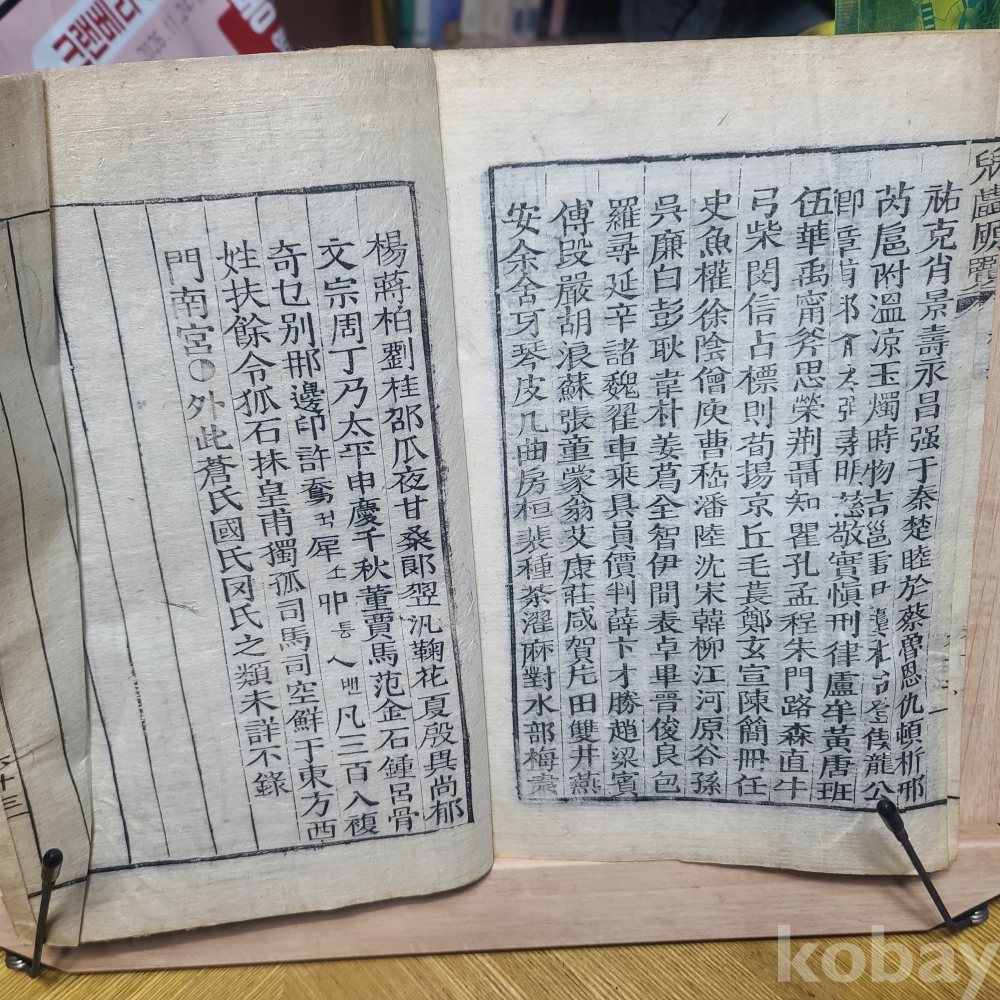 兒戱原覽
祐克肖景壽永昌强于秦楚睦於蔡曾恩仇頓析邢
芮扈附溫凉玉燭時物吉邕雷 龍公
慈敬實愼刑律盧牟黃唐班
伍華禹甯斧思榮荆聶知瞿孔孟程朱門路森直牛
弓柴閔信占標則荀揚京丘毛萇鄭玄宣陳簡冊任
史魚權徐陰僧庾曹嵆潘陸沈宋韓柳江河原谷孫
吳廉白彭耿韋朴姜葛全智伊間表卓畢晉俊良包
羅尋延辛諸魏翟車乘具員價判薛卞才勝趙梁賓
傅段嚴胡浪蘇張童蒙翁艾康莊咸賀片田雙井燕
安余舍牙琴皮几曲房桓裴種茶濯麻對水部梅素
楊蔣柏劉桂邵瓜夜甘桑郞翌汎鞠花夏殷具尚郁
文宗周丁乃太平申慶千秋董賈馬范金石鍾呂骨
奇乜別邢邊印許奝억犀소卯통乀밴凡三百八複
姓扶餘令狐石抹皇甫獨孤司馬司空鮮于東方西
門南宮○外此蒼氏國氏冈氏之類未詳不錄
十三
kobay